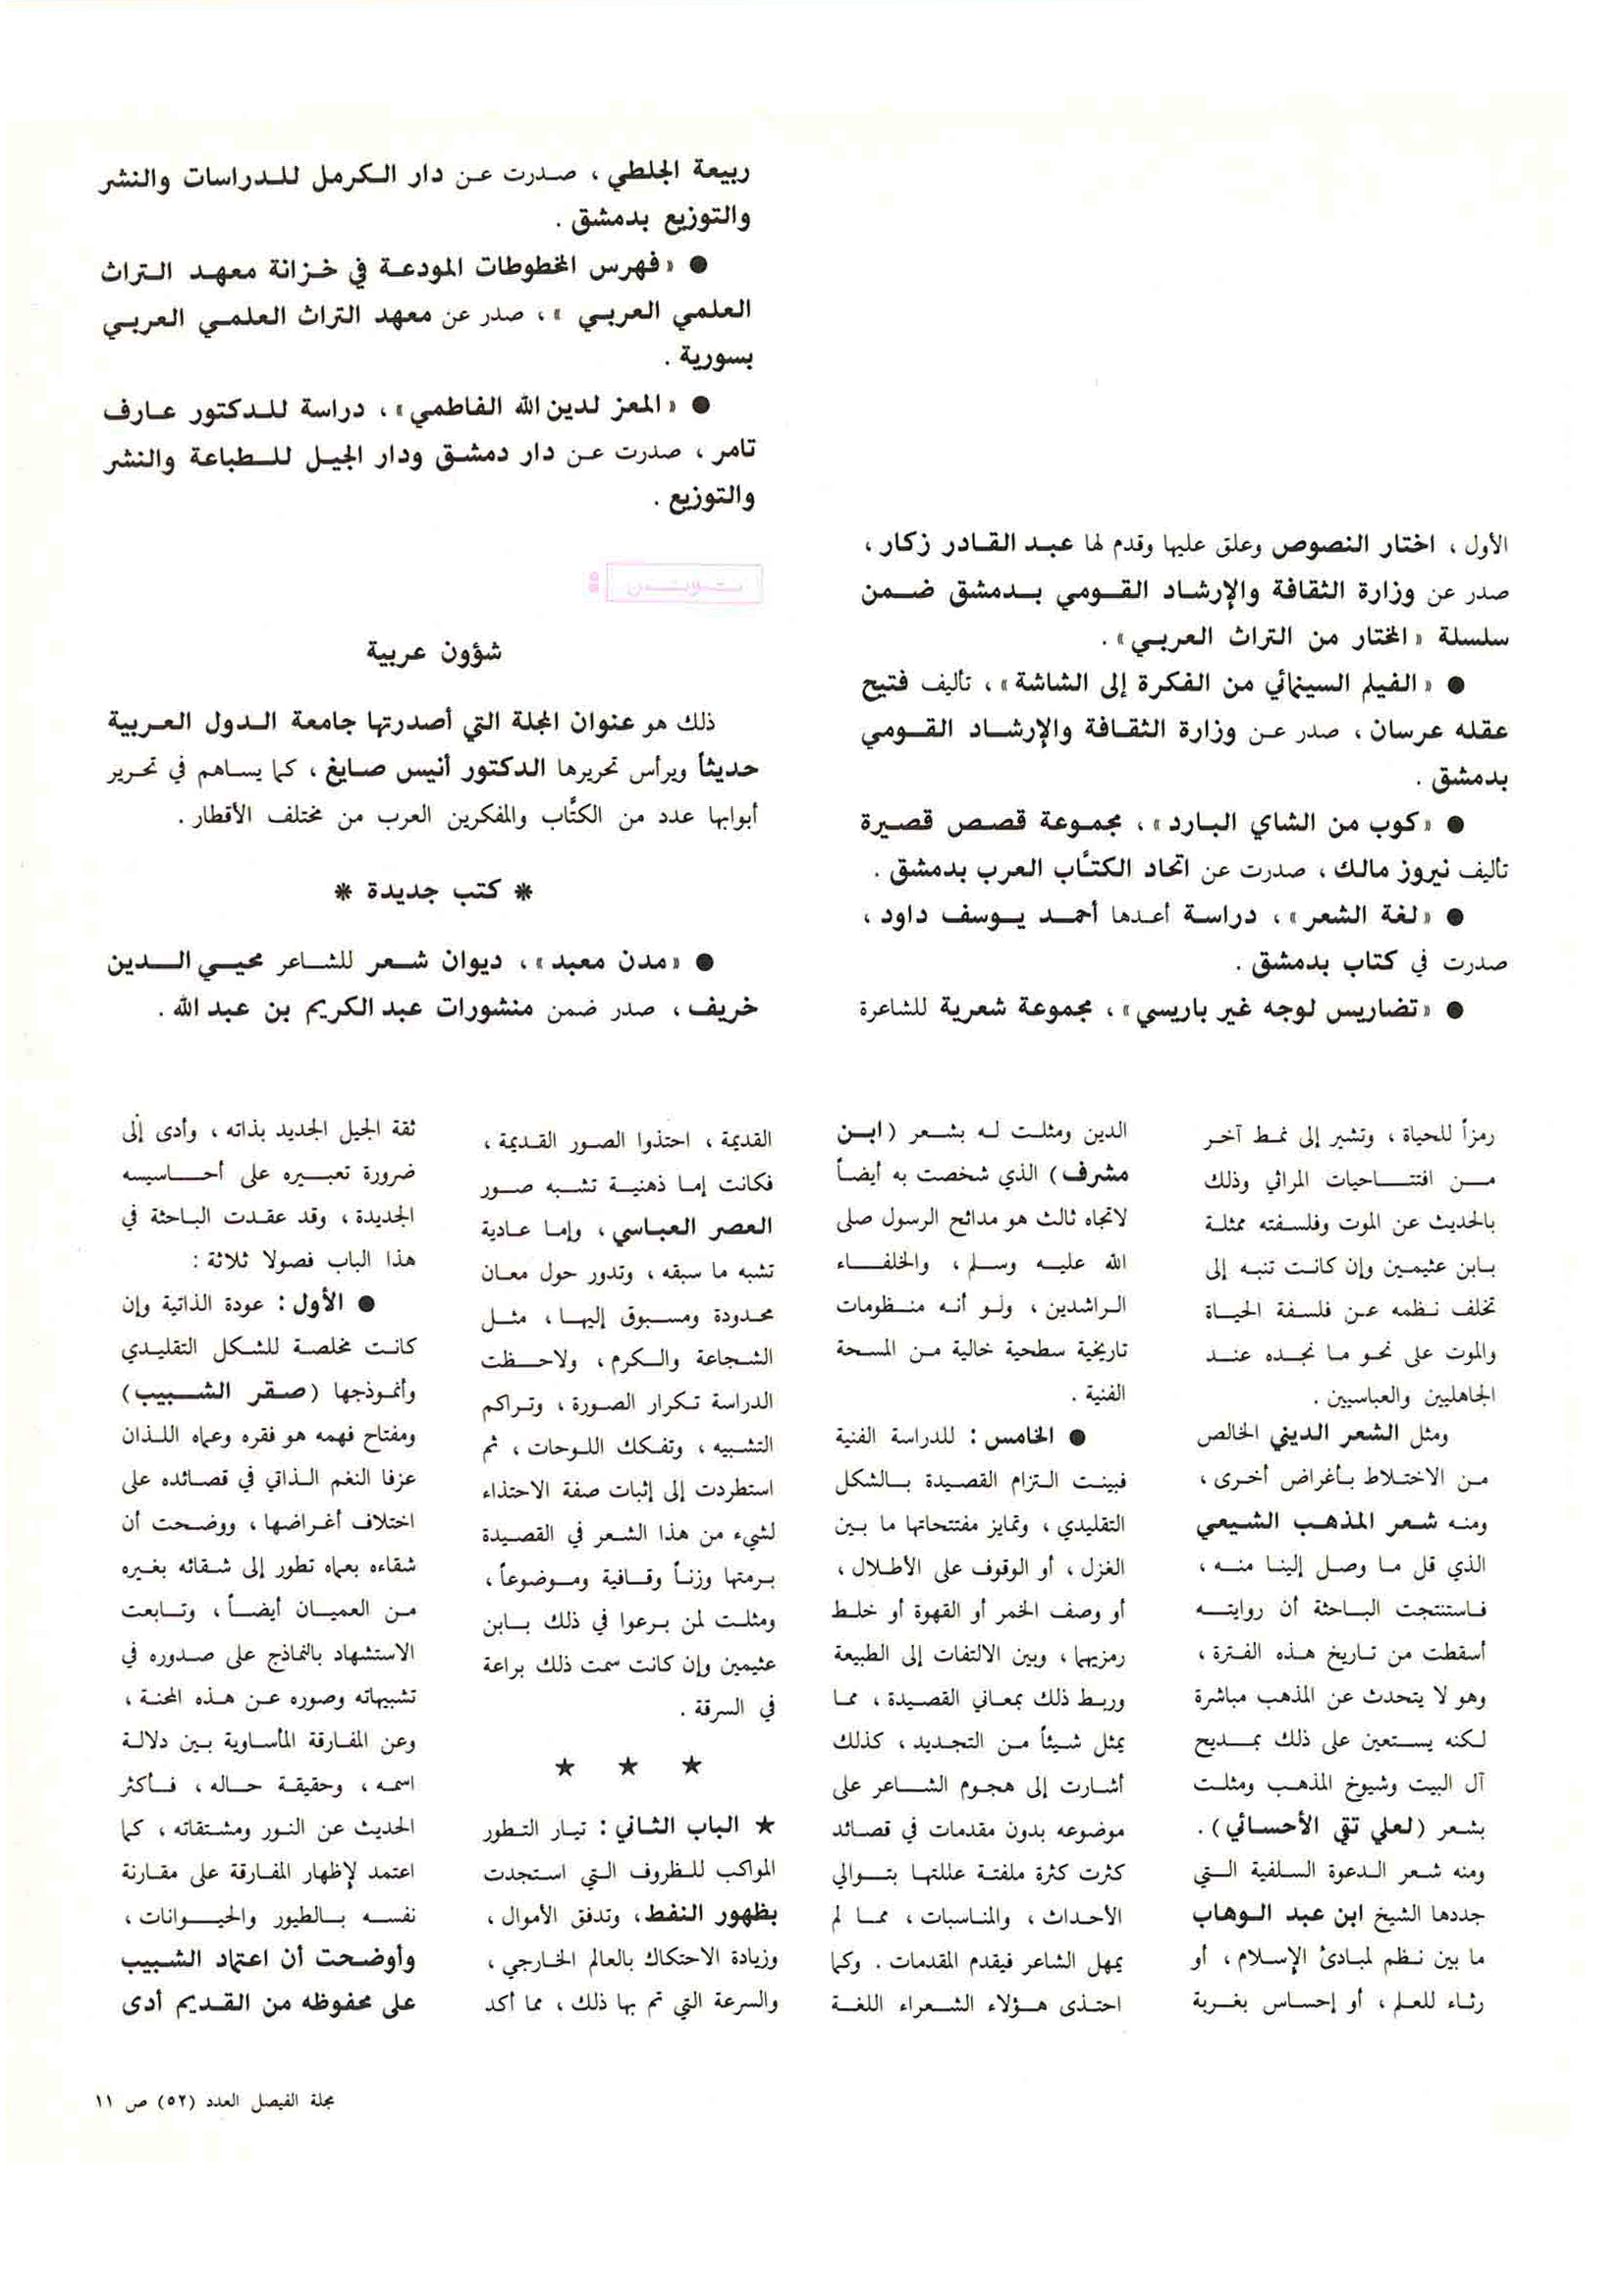 الأول ، اختار النصوص وعلق عليها وقدم لها عبد القادر زكار ،
صدر عن وزارة الثقافة والإرشاد القومي بدمشق ضمن
سلسلة «المختار من التراث العربي» .
● «الفيلم السينمائي من الفكرة إلى الشاشة» ، تأليف فتيح
عقله عرسان ، صدر عن وزارة الثقافة والإرشاد القومي
بدمشق .
● «كوب من الشاي البارد» ، مجموعة قصص قصيرة
تأليف نيروز مالك ، صدرت عن اتحاد الكتَّاب العرب بدمشق .
● «لغة الشعر» ، دراسة أعدها أحمد يوسف داود ،
صدرت في كتاب بدمشق .
● «تضاريس لوجه غير باريسي» ، مجموعة شعرية للشاعرة
ربيعة الجلطي ، صدرت عن دار الكرمل للدراسات والنشر
والتوزيع بدمشق .
● «فهرس المخطوطات المودعة في خزانة معهد التراث
العلمي العربي » ، صدر عن معهد التراث العلمي العربي
بسورية .
● «المعز لدين الله الفاطمي» ، دراسة للدكتور عارف
تامر ، صدرت عن دار دمشق ودار الجيل للطباعة والنشر
والتوزيع .
تونس
شؤون عربية
ذلك هو عنوان المجلة التي أصدرتها جامعة الدول العربية
حديثاً ويرأس تحريرها الدكتور أنيس صايغ ، كما يساهم في تحرير
أبوابها عدد من الكتَّاب والمفكرين العرب من مختلف الأقطار .
* كتب جديدة *
● «مدن معبد» ، ديوان شعر للشاعر محيي الدين
خريف ، صدر ضمن منشورات عبد الكريم بن عبد الله .
رمزاً للحياة ، وتشير إلى نمط آخر
من افتتاحيات المراثي وذلك
بالحديث عن الموت وفلسفته ممثلة
بابن عثيمين وإن كانت تنبه إلى
تخلف نظمه عن فلسفة الحياة
والموت على نحو ما نجده عند
الجاهليين والعباسيين .
ومثل الشعر الديني الخالص
من الاختلاط بأغراض أخرى ،
ومنه شعر المذهب الشيعي
الذي قل ما وصل إلينا منه ،
فاستنتجت الباحثة أن روايته
أسقطت من تاريخ هذه الفترة ،
وهو لا يتحدث عن المذهب مباشرة
لكنه يستعين على ذلك بمديح
آل البيت وشيوخ المذهب ومثلت
بشعر (لعلي تقي الأحسائي) .
ومنه شعر الدعوة السلفية التي
جددها الشيخ ابن عبد الوهاب
ما بين نظم لمبادئ الإسلام ، أو
رثاء للعلم ، أو إحساس بغربة
الدين ومثلت له بشعر (ابن
مشرف) الذي شخصت به أيضاً
لاتجاه ثالث هو مدائح الرسول صلى
الله عليه وسلم ، والخلفاء
الراشدين ، ولو أنه منظومات
تاريخية سطحية خالية من المسحة
الفنية .
● الخامس : للدراسة الفنية
فبينت التزام القصيدة بالشكل
التقليدي ، وتمايز مفتتحاتها ما بين
الغزل ، أو الوقوف على الأطلال ،
أو وصف الخمر أو القهوة أو خلط
رمزيهما ، وبين الالتفات إلى الطبيعة
وربط ذلك بمعاني القصيدة ، مما
يمثل شيئاً من التجديد ، كذلك
أشارت إلى هجوم الشاعر على
موضوعه بدون مقدمات في قصائد
كثرت كثرة ملفتة عللتها بتوالي
الأحداث ، والمناسبات ، مما لم
يمهل الشاعر فيقدم المقدمات . وكما
احتذى هؤلاء الشعراء اللغة
القديمة ، احتذوا الصور القديمة ،
فكانت إما ذهنية تشبه صور
العصر العباسي ، وإما عادية
تشبه ما سبقه ، وتدور حول معان
محدودة ومسبوق إليها ، مثل
الشجاعة والكرم ، ولاحظت
الدراسة تكرار الصورة ، وتراكم
التشبيه ، وتفكك اللوحات ، ثم
استطردت إلى إثبات صفة الاحتذاء
لشيء من هذا الشعر في القصيدة
برمتها وزناً وقافية وموضوعاً ،
ومثلت لمن برعوا في ذلك بابن
عثيمين وإن كانت سمت ذلك براعة
في السرقة .
★ ★ ★
★ الباب الثاني : تيار التطور
المواكب للظروف التي استجدت
بظهور النفط ، وتدفق الأموال ،
وزيادة الاحتكاك بالعالم الخارجي ،
والسرعة التي تم بها ذلك ، مما أكد
ثقة الجيل الجديد بذاته ، وأدى إلى
ضرورة تعبيره على أحاسيسه
الجديدة ، وقد عقدت الباحثة في
هذا الباب فصولا ثلاثة :
● الأول : عودة الذاتية وإن
كانت مخلصة للشكل التقليدي
وأنموذجها (صقر الشبيب)
ومفتاح فهمه هو فقره وعماه اللذان
عزفا النغم الذاتي في قصائده على
اختلاف أغراضها ، ووضحت أن
شقاءه بعماه تطور إلى شقائه بغيره
من العميان أيضاً ، وتابعت
الاستشهاد بالنماذج على صدوره في
تشبيهاته وصوره عن هذه المحنة ،
وعن المفارقة المأساوية بين دلالة
اسمه ، وحقيقة حاله ، فأكثر
الحديث عن النور ومشتقاته ، كما
اعتمد لإظهار المفارقة على مقارنة
نفسه بالطيور والحيوانات ،
وأوضحت أن اعتماد الشبيب
على محفوظه من القديم أدى
مجلة الفيصل العدد (٥٢) ص ١١